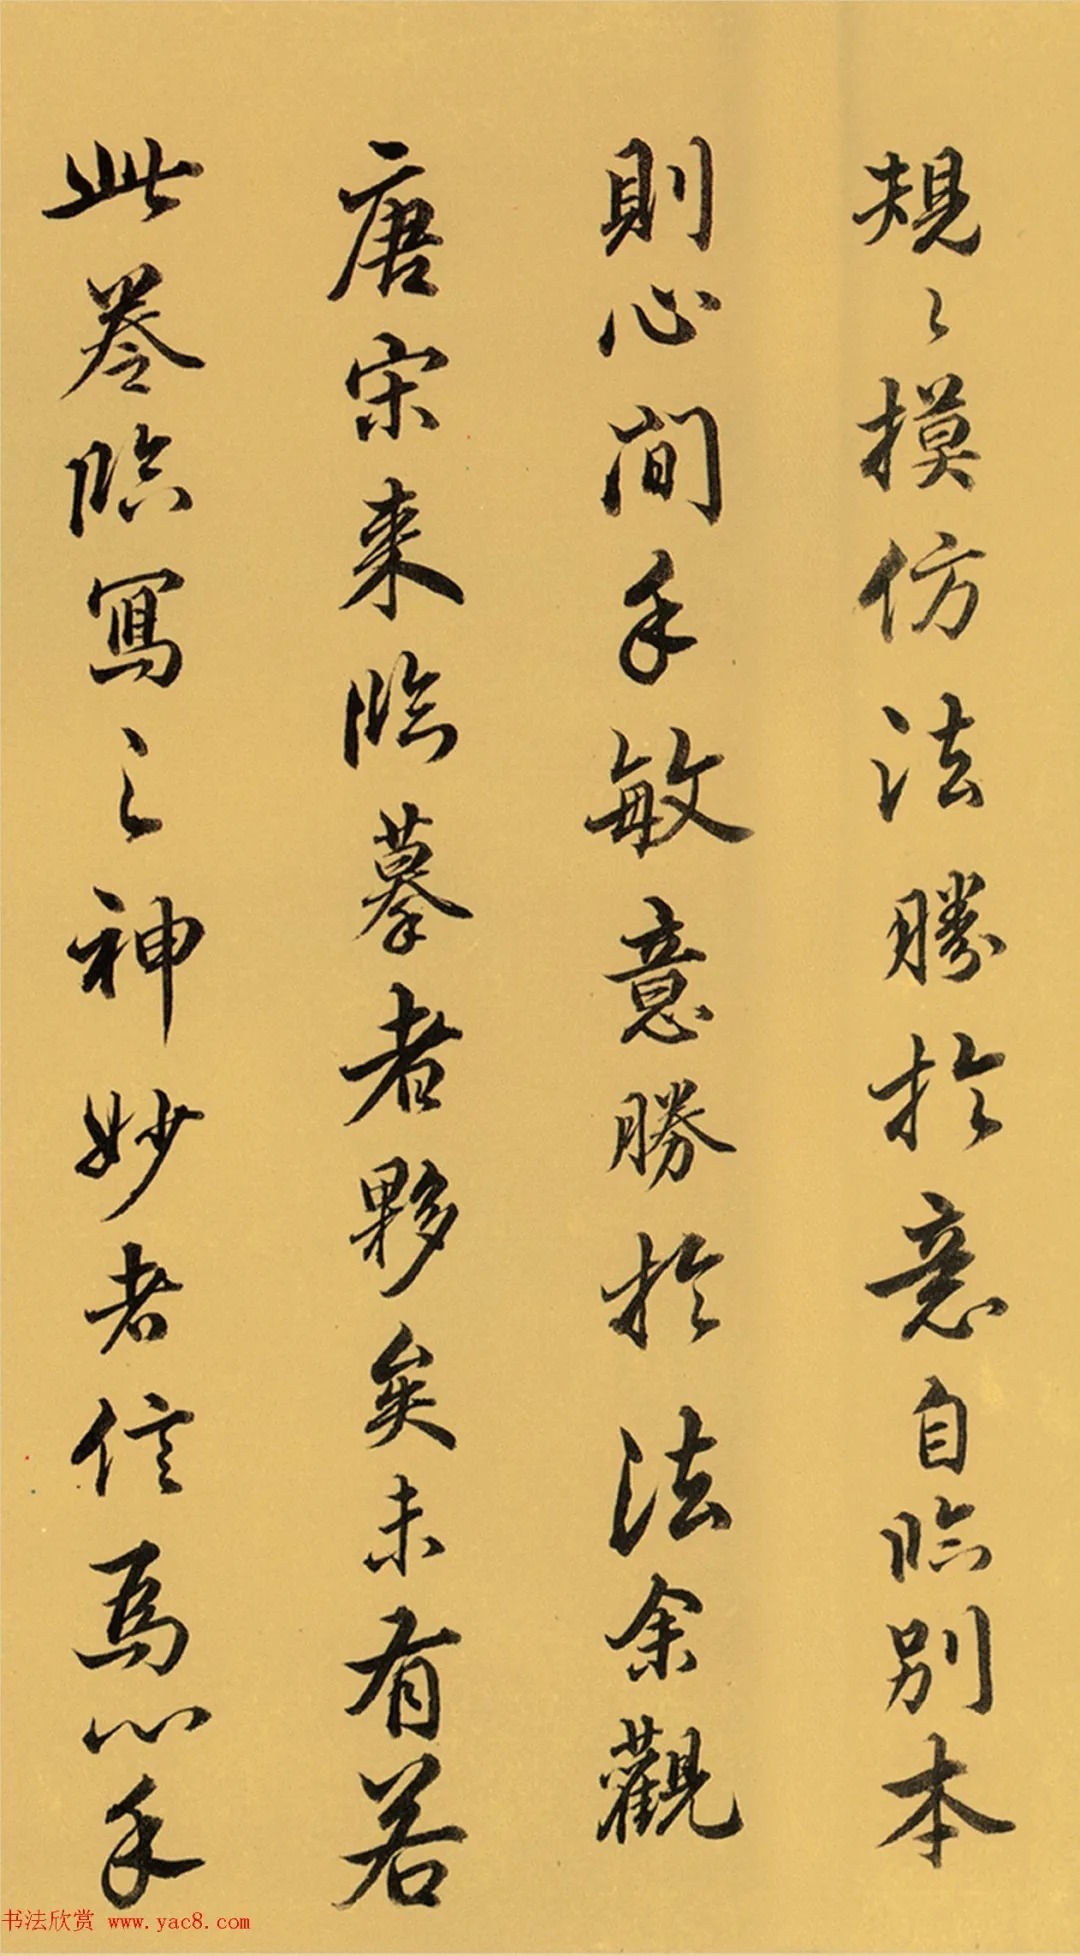 規〻摸仿法勝於意自臨別本
則心閒手敏意勝於法余觀
唐宋來臨摹者夥矣未有若
此卷臨寫之神妙者信爲心手
书法欣赏 www.yac8.com